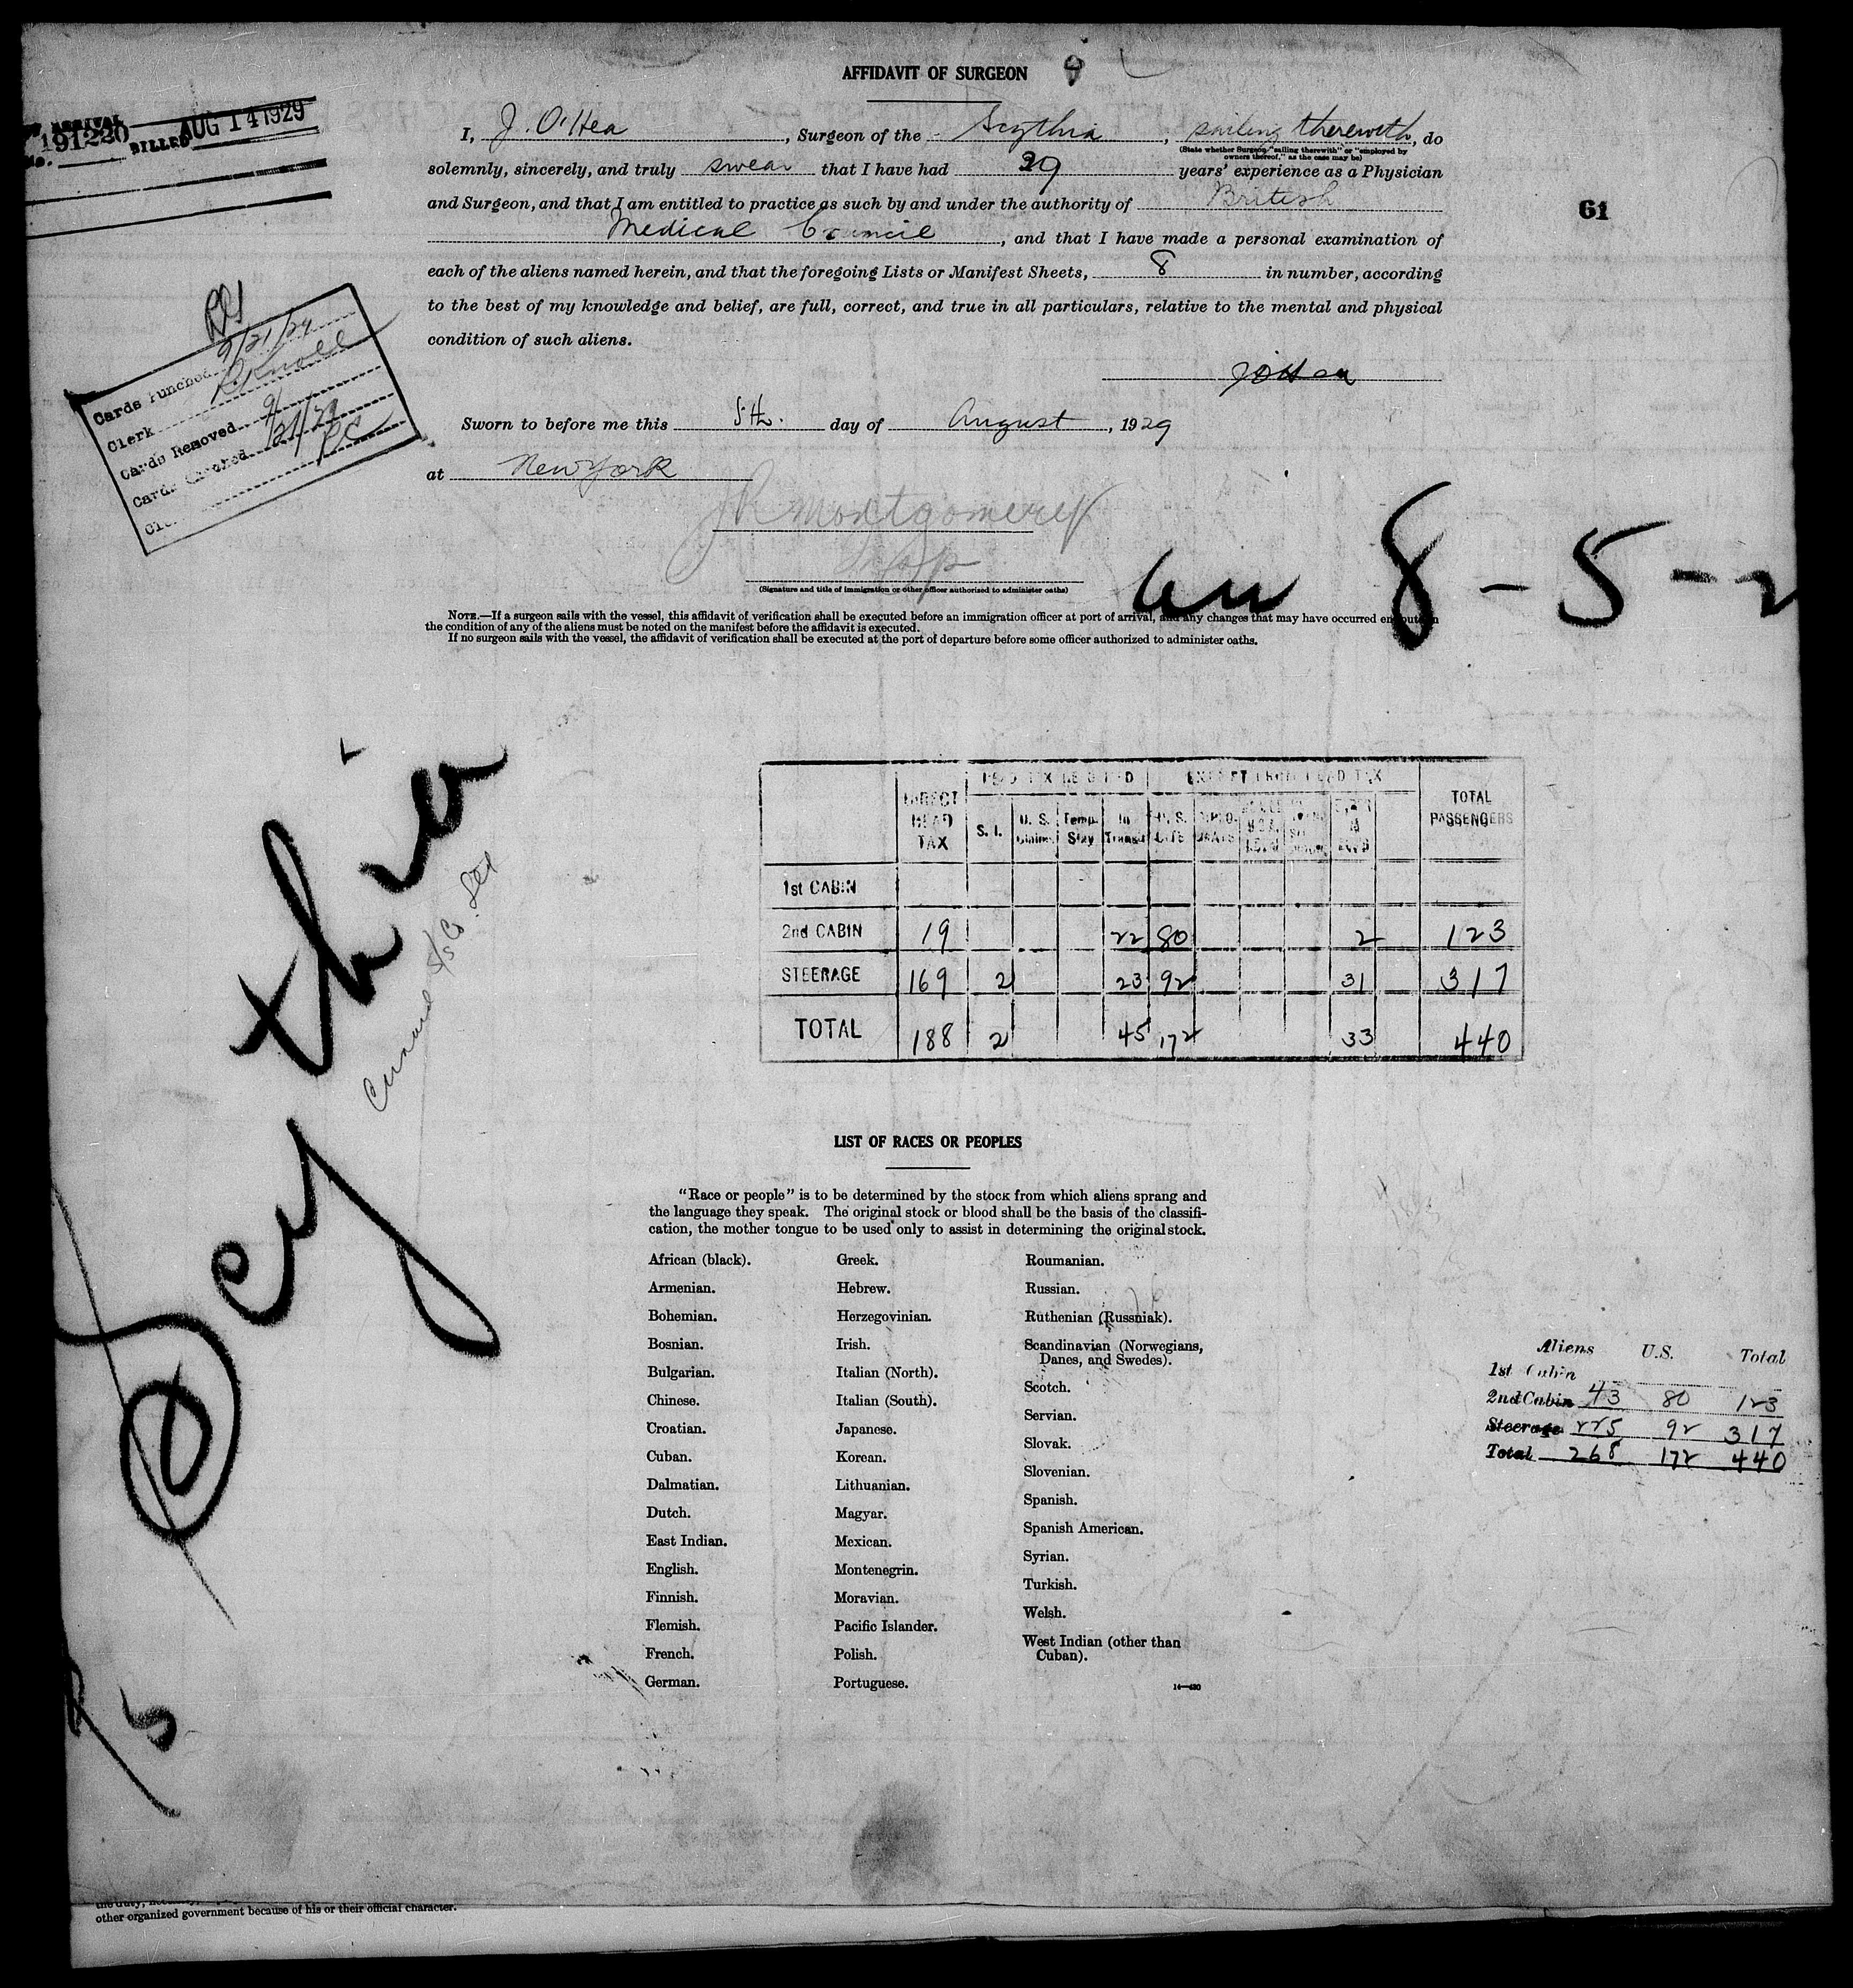 AFFIDAVIT OF SURGEON
191230 BILLED AUG 14 1929
I, J. O'Hea, Surgeon of the Scythia, sailing therewith, do
(State whether Surgeon "sailing therewith" or "employed by
owners thereof," as the case may be)
solemnly, sincerely, and truly swear that I have had 29 years' experience as a Physician
and Surgeon, and that I am entitled to practice as such by and under the authority of British
61
Medical Council, and that I have made a personal examination of
each of the aliens named herein, and that the foregoing Lists or Manifest Sheets, 8 in number, according
to the best of my knowledge and belief, are full, correct, and true in all particulars, relative to the mental and physical
condition of such aliens.
J O'Hea
Cards Punched 9/21/29
Clerk R Knoll
Cards Removed
Cards Checked 9/21/29
Sworn to before me this 5th. day of August, 1929
at New York
JR Montgomery
(Signature and title of immigration or other officer authorized to administer oaths)
8-5-2
NOTE.—If a surgeon sails with the vessel, this affidavit of verification shall be executed before an immigration officer at port of arrival, and any changes that may have occurred en route in
the condition of any of the aliens must be noted on the manifest before the affidavit is executed.
If no surgeon sails with the vessel, the affidavit of verification shall be executed at the port of departure before some officer authorized to administer oaths.
Scythia
Cunard S/S Co.
EXEMPT FROM HEAD TAX
DIRECT HEAD TAX S. I. U. S. Temp. Stay In Transit U. S. TOTAL PASSENGERS
1st CABIN
2nd CABIN 19 22 80 2 123
STEERAGE 169 2 23 92 31 317
TOTAL 188 2 45 172 33 440
LIST OF RACES OR PEOPLES
"Race or people" is to be determined by the stock from which aliens sprang and
the language they speak. The original stock or blood shall be the basis of the classifi-
cation, the mother tongue to be used only to assist in determining the original stock.
African (black).
Armenian.
Bohemian.
Bosnian.
Bulgarian.
Chinese.
Croatian.
Cuban.
Dalmatian.
Dutch.
East Indian.
English.
Finnish.
Flemish.
French.
German.
Greek.
Hebrew.
Herzegovinian.
Irish.
Italian (North).
Italian (South).
Japanese.
Korean.
Lithuanian.
Magyar.
Mexican.
Montenegrin.
Moravian.
Pacific Islander.
Polish.
Portuguese.
Roumanian.
Russian.
Ruthenian (Russniak).
Scandinavian (Norwegians,
Danes, and Swedes).
Scotch.
Servian.
Slovak.
Slovenian.
Spanish.
Spanish American.
Syrian.
Turkish.
Welsh.
West Indian (other than
Cuban).
14—430
Aliens U.S. Total
1st Cabin
2nd Cabin 43 80 123
Steerage 225 92 317
Total 268 172 440
other organized government because of his or their official character.